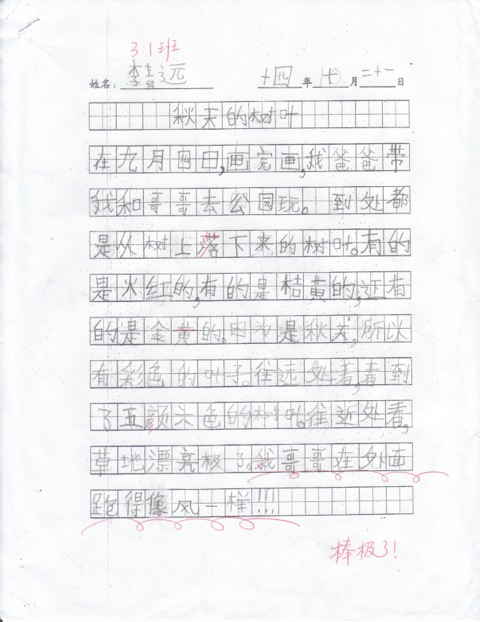 31班
姓名：李道远 十四年十月二十一日
秋天的树叶
在九月四日，画完画，我爸爸带
我和哥哥去公园玩。 到处都
是从树上落下来的树叶。有的
是火红的，有的是桔黄的，还有
的是金黄的。因为是秋天，所以
有彩色的叶子。往远处看，看到
了五颜六色的树叶。往近处看，
草地漂亮极了。我哥哥在外面
跑得像风一样!!!
棒极了!